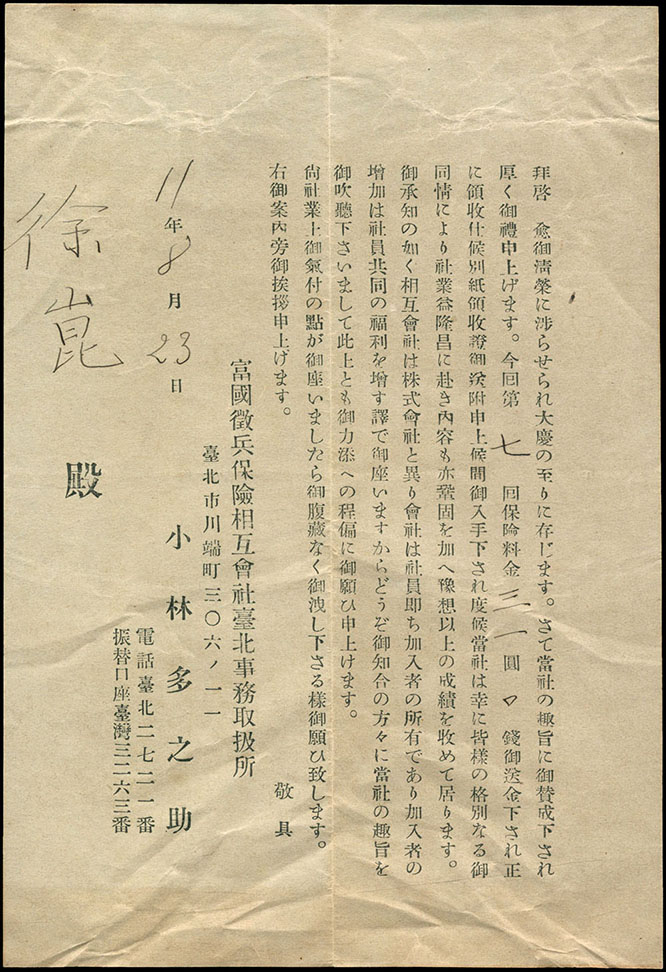 拜啓 愈御淸榮に涉らせられ大慶の至りに存じます。さて當社の趣旨に御賛成下され
厚く御禮申上げます。今回第七回保險料金三一圓口錢御送金下され正
に領收仕候別紙領收證御送附申上候間御入手下され度候當社は幸に皆樣の格別なる御
同情により社業益隆昌に赴き內容も亦鞏固を加へ豫想以上の成績を收めて居ります。
御承知の如く相互會社は株式會社と異り會社は社員卽ち加入者の所有であり加入者の
增加は社員共同の福利を增す譯で御座いますからどうぞ御知合の方々に當社の趣旨を
御吹聽下さいまして此上とも御力添への程偏に御願ひ申上げます。
尙社業上御氣付の點が御座いましたら御腹藏なく御洩し下さる樣御願ひ致します。
右御案內旁御挨拶申上げます。
敬具
富國徵兵保險相互會社臺北事務取扱所
臺北市川端町三〇六ノ一一
小林多之助
電話臺北二七二一番
振替口座臺灣三二六三番
11年8月23日
徐崑殿